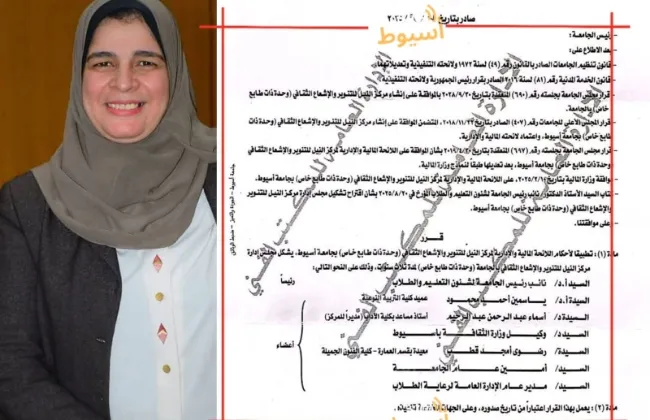 صادر بتاريخ / / ٢٠٢٥
أسيوط
رئيس الجامعة:
بعد الاطلاع على:
قانون تنظيم الجامعات الصادر بالقانون رقم (٤٩) لسنة ١٩٧٢ ولائحته التنفيذية وتعديلاتهما.
قانون الخدمة المدنية رقم (٨١) لسنة ٢٠١٦ الصادر بقرار رئيس الجمهورية ولائحته التنفيذية.
قرار مجلس الجامعة بجلسته رقم (٦٩٠) المنعقدة بتاريخ بالموافقة على إنشاء مركز النيل للتنوير والإشعاع الثقافي (وحدة ذات طابع
خاص) بالجامعة.
قرار المجلس الأعلى للجامعات رقم (٤٠٧) الصادر بتاريخ المتضمن الموافقة على إنشاء مركز النيل للتنوير والإشعاع الثقافي (وحدة ذات
طابع خاص) بجامعة أسيوط، واعتماد لائحته المالية والإدارية.
قرار مجلس الجامعة بجلسته رقم (٦٩٧) المنعقدة بتاريخ بشأن الموافقة على اللائحة المالية والإدارية لمركز النيل للتنوير والإشعاع الثقافي
(وحدة ذات طابع خاص) بجامعة أسيوط، بعد تعديلها طبقا لنماذج وزارة المالية.
موافقة وزارة المالية بتاريخ على اللائحة المالية والإدارية لمركز النيل للتنوير والإشعاع الثقافي (وحدة ذات طابع خاص) بجامعة أسيوط.
كتاب السيد الأستاذ الدكتور نائب رئيس الجامعة لشئون التعليم والطلاب المؤرخ في ٢٠٢٥/٨/٢٠ بشأن اقتراح تشكيل مجلس إدارة مركز النيل للتنوير
والإشعاع الثقافي (وحدة ذات طابع خاص) بجامعة أسيوط.
على موافقتنا.
قرر
مادة (١): تطبيقا لأحكام اللائحة المالية والإدارية لمركز النيل للتنوير والإشعاع الثقافي (وحدة ذات طابع خاص) بجامعة أسيوط، يشكل مجلس إدارة
مركز النيل للتنوير والإشعاع الثقافي (وحدة ذات طابع خاص) بالجامعة لمدة ثلاث سنوات، وذلك على النحو التالي:
السيد أ.د/ نائب رئيس الجامعة لشئون التعليم والطلاب رئيساً
السيدة أ.د/ ياسمين أحمد محمود عميد كلية التربية النوعية
السيدة د/ أسماء عبد الرحمن عبد الرحيم أستاذ مساعد بكلية الآداب (مديراً للمركز)
السيد/ وكيل وزارة الثقافة بأسيوط
السيدة/ رضوى أمجد قطب معيدة بقسم العمارة – كلية الفنون الجميلة
السيد/ أمين عام الجامعة
السيد/ مدير عام الإدارة العامة لرعاية الطلاب
أعضاء
مادة (٢): يعمل بهذا القرار اعتباراً من تاريخ صدوره، وعلى الجهات تنفيذه.